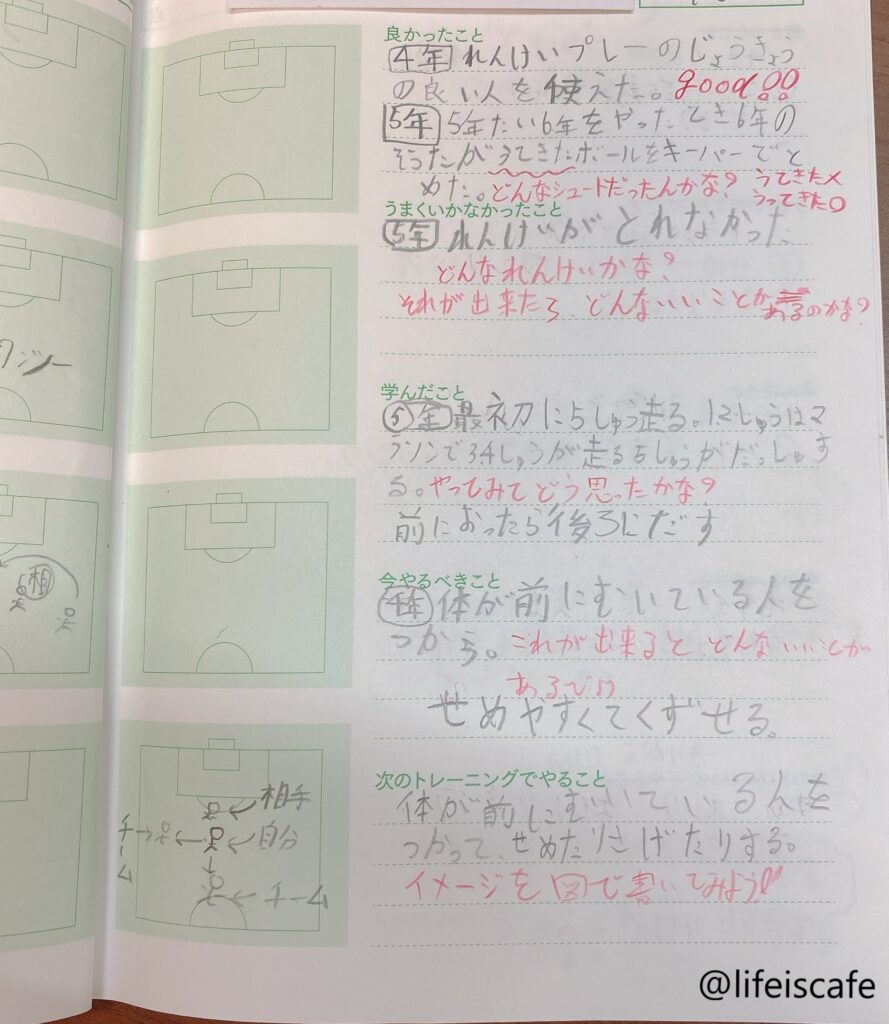 良かったこと
4年 れんけいプレーのじょうきょう
の良い人を使えた。good!!
5年 5年たい6年をやったとき6年の
そうたがうてきたボールをキーパーでと
めた。どんなシュートだったんかな? うてきた×
うってきた○
うまくいかなかったこと
5年 れんけいがとれなかった
どんなれんけいかな?
それが出来たら、どんないいことが
あるのかな?
学んだこと
5年 最初に5しゅう走る。1.2しゅうはマ
ラソンで3.4しゅうが走る5しゅうがだっしゅす
る。やってみてどう思ったかな?
前におったら後ろにだす
今やるべきこと
4年 体が前にむいている人を
つかう。これが出来るとどんないいことが
ある
せめやすくてくずせる。
次のトレーニングでやること
体が前にむいている人を
つかって、せめたりさげたりする。
イメージを図で書いてみよう!!
相
相手
自分
チーム
チーム
@lifeiscafe